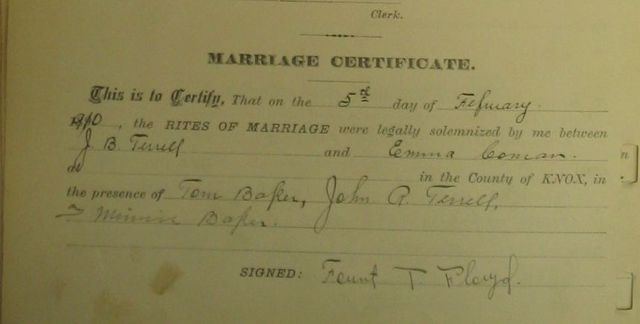 Clerk.
MARRIAGE CERTIFICATE.
This is to Certify, That on the 5th day of February
1910, the RITES OF MARRIAGE were legally solemnized by me between
J B Terrell and Emma Coman.
at in the County of KNOX, in
the presence of Tom Baker, John A. Terrell,
& Minnie Baker.
SIGNED: Fount T. Floyd.